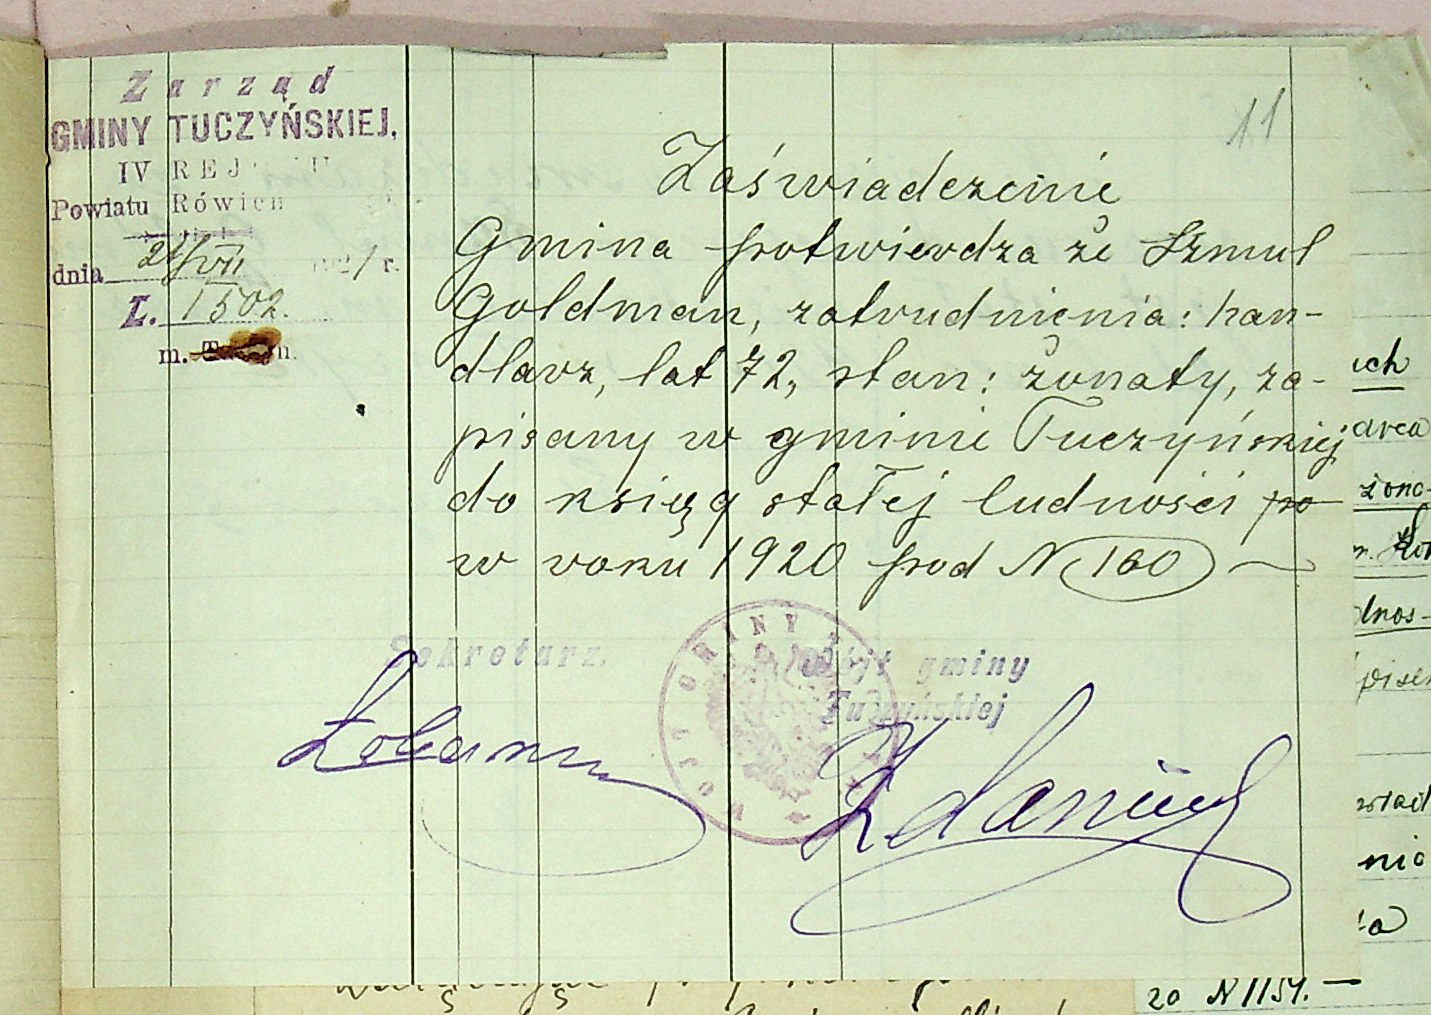 11
Zarząd
GMINY TUCZYŃSKIEJ,
IV REJ
Powiatu Rówień
dnia 21/VII 1921 r.
L. 1502.
m.
Zaświadczenie
Gmina potwierdza że Szmul
Goldman, zatrudnienia: han-
dlarz, lat 72, stan: żonaty, za-
pisany w gminie Tuczyńskiej
do księg stałej ludności po
w roku 1920 pod N 160
Sekretarz.
WÓJT GMINY
Wójt gminy
Tuczyńskiej
uch
żona-
dnos-
pisen
nia
ta
20 N 1154.